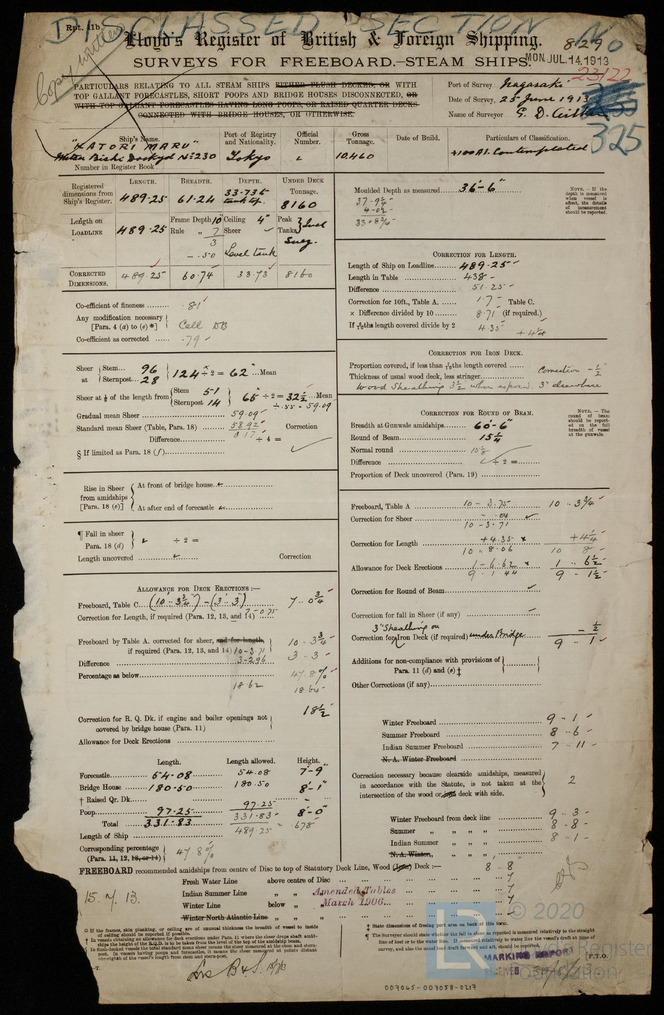 DISCLASSED SECTION No
Rpt. 11b.
Copy written
Lloyd's Register of British & Foreign Shipping.
829
SURVEYS FOR FREEBOARD.—STEAM SHIPS.
MON. JUL 14. 1913
23/22
325
PARTICULARS RELATING TO ALL STEAM SHIPS EITHER FLUSH DECKED, OR WITH
TOP GALLANT FORECASTLES, SHORT POOPS AND BRIDGE HOUSES DISCONNECTED, OR
WITH TOP GALLANT FORECASTLES HAVING LONG POOPS, OR RAISED QUARTER DECKS
CONNECTED WITH BRIDGE HOUSES, OR OTHERWISE.
Port of Survey Nagasaki
Date of Survey 25 June 1913
Name of Surveyor G. D.
Ship's Name. Port of Registry and Nationality. Official Number. Gross Tonnage. Date of Build. Particulars of Classification.
"KATORI MARU"
No 230 Tokyo 10,460 +100A1. Contemplated
Number in Register Book
Registered dimensions from Ship's Register. LENGTH. 489.25 BREADTH. 61.24 DEPTH. 33.735 UNDER DECK TONNAGE. 8160
Length on LOADLINE 489.25 Frame Depth 10 Ceiling 4" Peak Tanks
Rule 7 Sheer
3
.50 Level tank
CORRECTED DIMENSIONS. 489.25 60.74 33.73 8160
Moulded Depth as measured 36'-6"
NOTE.—If the depth is measured when vessel is afloat, the details of measurement should be reported.
Co-efficient of fineness .81
Any modification necessary [Para. 4 (a) to (e)*] Cell DB
Co-efficient as corrected .79
CORRECTION FOR LENGTH.
Length of Ship on Loadline 489.25
Length in Table 438
Difference 51.25
Correction for 10ft., Table A. 1.7 Table C.
× Difference divided by 10 8.71 (if required.)
If 6/10ths length covered divide by 2 4.35
Sheer at Stem 96 Sternpost 28 124 ÷ 2 = 62" Mean
Sheer at 1/8 of the length from Stem 51 Sternpost 14 65 ÷ 2 = 32½ Mean
÷ .55 = 59.09
Gradual mean Sheer 59.09
Standard mean Sheer (Table, Para. 18) 58.92 Correction
Difference .17 ÷ 4 =
§ If limited as Para. 18 (f)
CORRECTION FOR IRON DECK.
Proportion covered, if less than 7/10ths length covered Correction - ½
Thickness of usual wood deck, less stringer
Wood Sheathing 3½ when exposed. 3" elsewhere
CORRECTION FOR ROUND OF BEAM.
Breadth at Gunwale amidships 60'-6"
Round of Beam 15¼
Normal round
Difference ÷ 2 =
Proportion of Deck uncovered (Para. 19)
NOTE.—The round of beam should be reported on the full breadth of vessel at the gunwale.
Rise in Sheer from amidships [Para. 18 (e)] At front of bridge house
At after end of forecastle
¶ Fall in sheer Para. 18 (d) ÷ 2 =
Length uncovered Correction
Freeboard, Table A 10 - 3.75 10 - 3¾
Correction for Sheer - .04
10 - 3.71
Correction for Length + 4.35 + 4¼
10 - 8.06 10 8
Allowance for Deck Erections 1 - 6.62 1 - 6½
9 - 1.44 9 - 1½
Correction for Round of Beam
Correction for fall in Sheer (if any)
3" Sheathing on
Correction for Iron Deck (if required) under Bridge - ½
9 - 1
Additions for non-compliance with provisions of Para. 11 (d) and (e) ‡
Other Corrections (if any)
ALLOWANCE FOR DECK ERECTIONS:—
Freeboard, Table C (10 - 3¾) - (3 - 3) 7 - 0¾
Correction for Length, (if required, Para. 12, 13, and 14) 7 - 0.75
Freeboard by Table A. corrected for sheer, and for length, if required (Para. 12, 13, and 14) 10 - 3.71 10 - 3¾
Difference 3 - 2.96 3 - 3
Percentage as below 47.8%
18.62 18.64
18½
Correction for R. Q. Dk. if engine and boiler openings not covered by bridge house (Para. 11)
Allowance for Deck Erections
Length. Length allowed. Height.
Forecastle 54.08 54.08 7'-9"
Bridge House 180.50 180.50 8'-1"
† Raised Qr. Dk.
Poop 97.25 97.25 8'-0"
Total 331.83 331.83
Length of Ship 489.25 = .678
Corresponding percentage (Para. 11, 12, 13, or 14) 47.8%
Winter Freeboard 9 - 1
Summer Freeboard 8 - 6
Indian Summer Freeboard 7 - 11
N. A. Winter Freeboard
Correction necessary because clearside amidships, measured in accordance with the Statute, is not taken at the intersection of the wood or iron deck with side. 2
Winter Freeboard from deck line 9 - 3
Summer " " " " 8 - 8
Indian Summer " " 8 - 1
N. A. Winter, " "
FREEBOARD recommended amidships from centre of Disc to top of Statutory Deck Line, Wood (Iron) Deck:— 8 - 8
Fresh Water Line above centre of Disc 7
Indian Summer Line " " 7
Winter Line below " 7
Winter North Atlantic Line
15. 7. 13.
Amended Tables
March 1906
MARKING REPORT
P.T.O.
© 2020
LR
Lloyd's Register
Foundation
003065-003058-0217